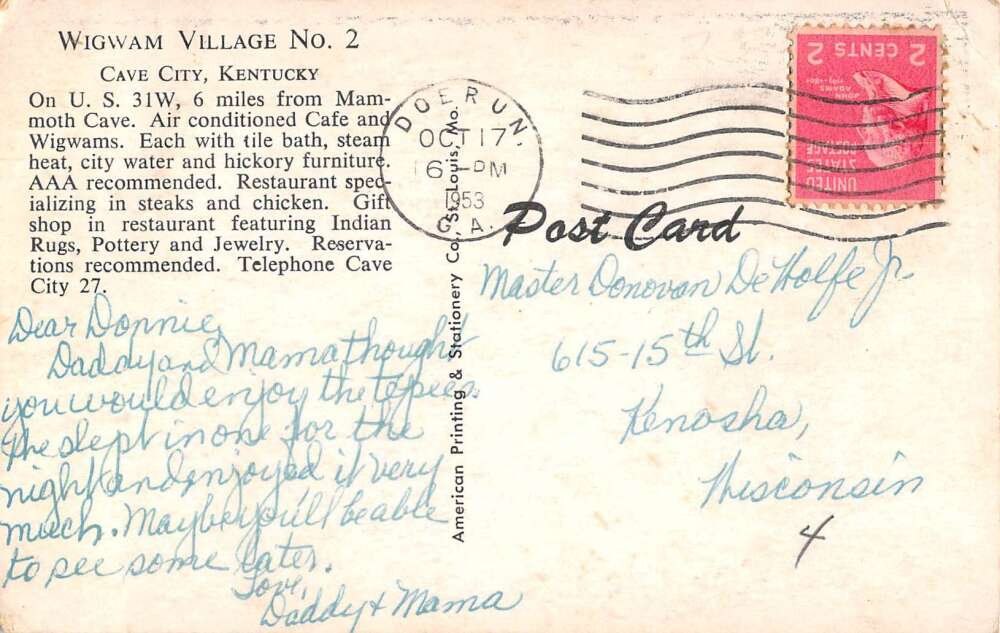 WIGWAM VILLAGE NO. 2
CAVE CITY, KENTUCKY
On U. S. 31W, 6 miles from Mam-
moth Cave. Air conditioned Cafe and
Wigwams. Each with tile bath, steam
heat, city water and hickory furniture.
AAA recommended. Restaurant spec-
ializing in steaks and chicken. Gift
shop in restaurant featuring Indian
Rugs, Pottery and Jewelry. Reserva-
tions recommended. Telephone Cave
City 27.
Dear Donnie,
Daddy and Mama thought
you would enjoy the tepees.
We slept in one for the
night and enjoyed it very
much. Maybe you'll be able
to see some later.
Love,
Daddy & Mama
American Printing & Stationery Co., St. Louis, Mo.
DOERUN,
OCT 17
6 - PM
1953
GA.
2 CENTS 2
JOHN
ADAMS
1797-1801
UNITED
STATES
POSTAGE
Post Card
Master Donovan De Wolfe Jr.
615-15th St.
Kenosha,
Wisconsin
4